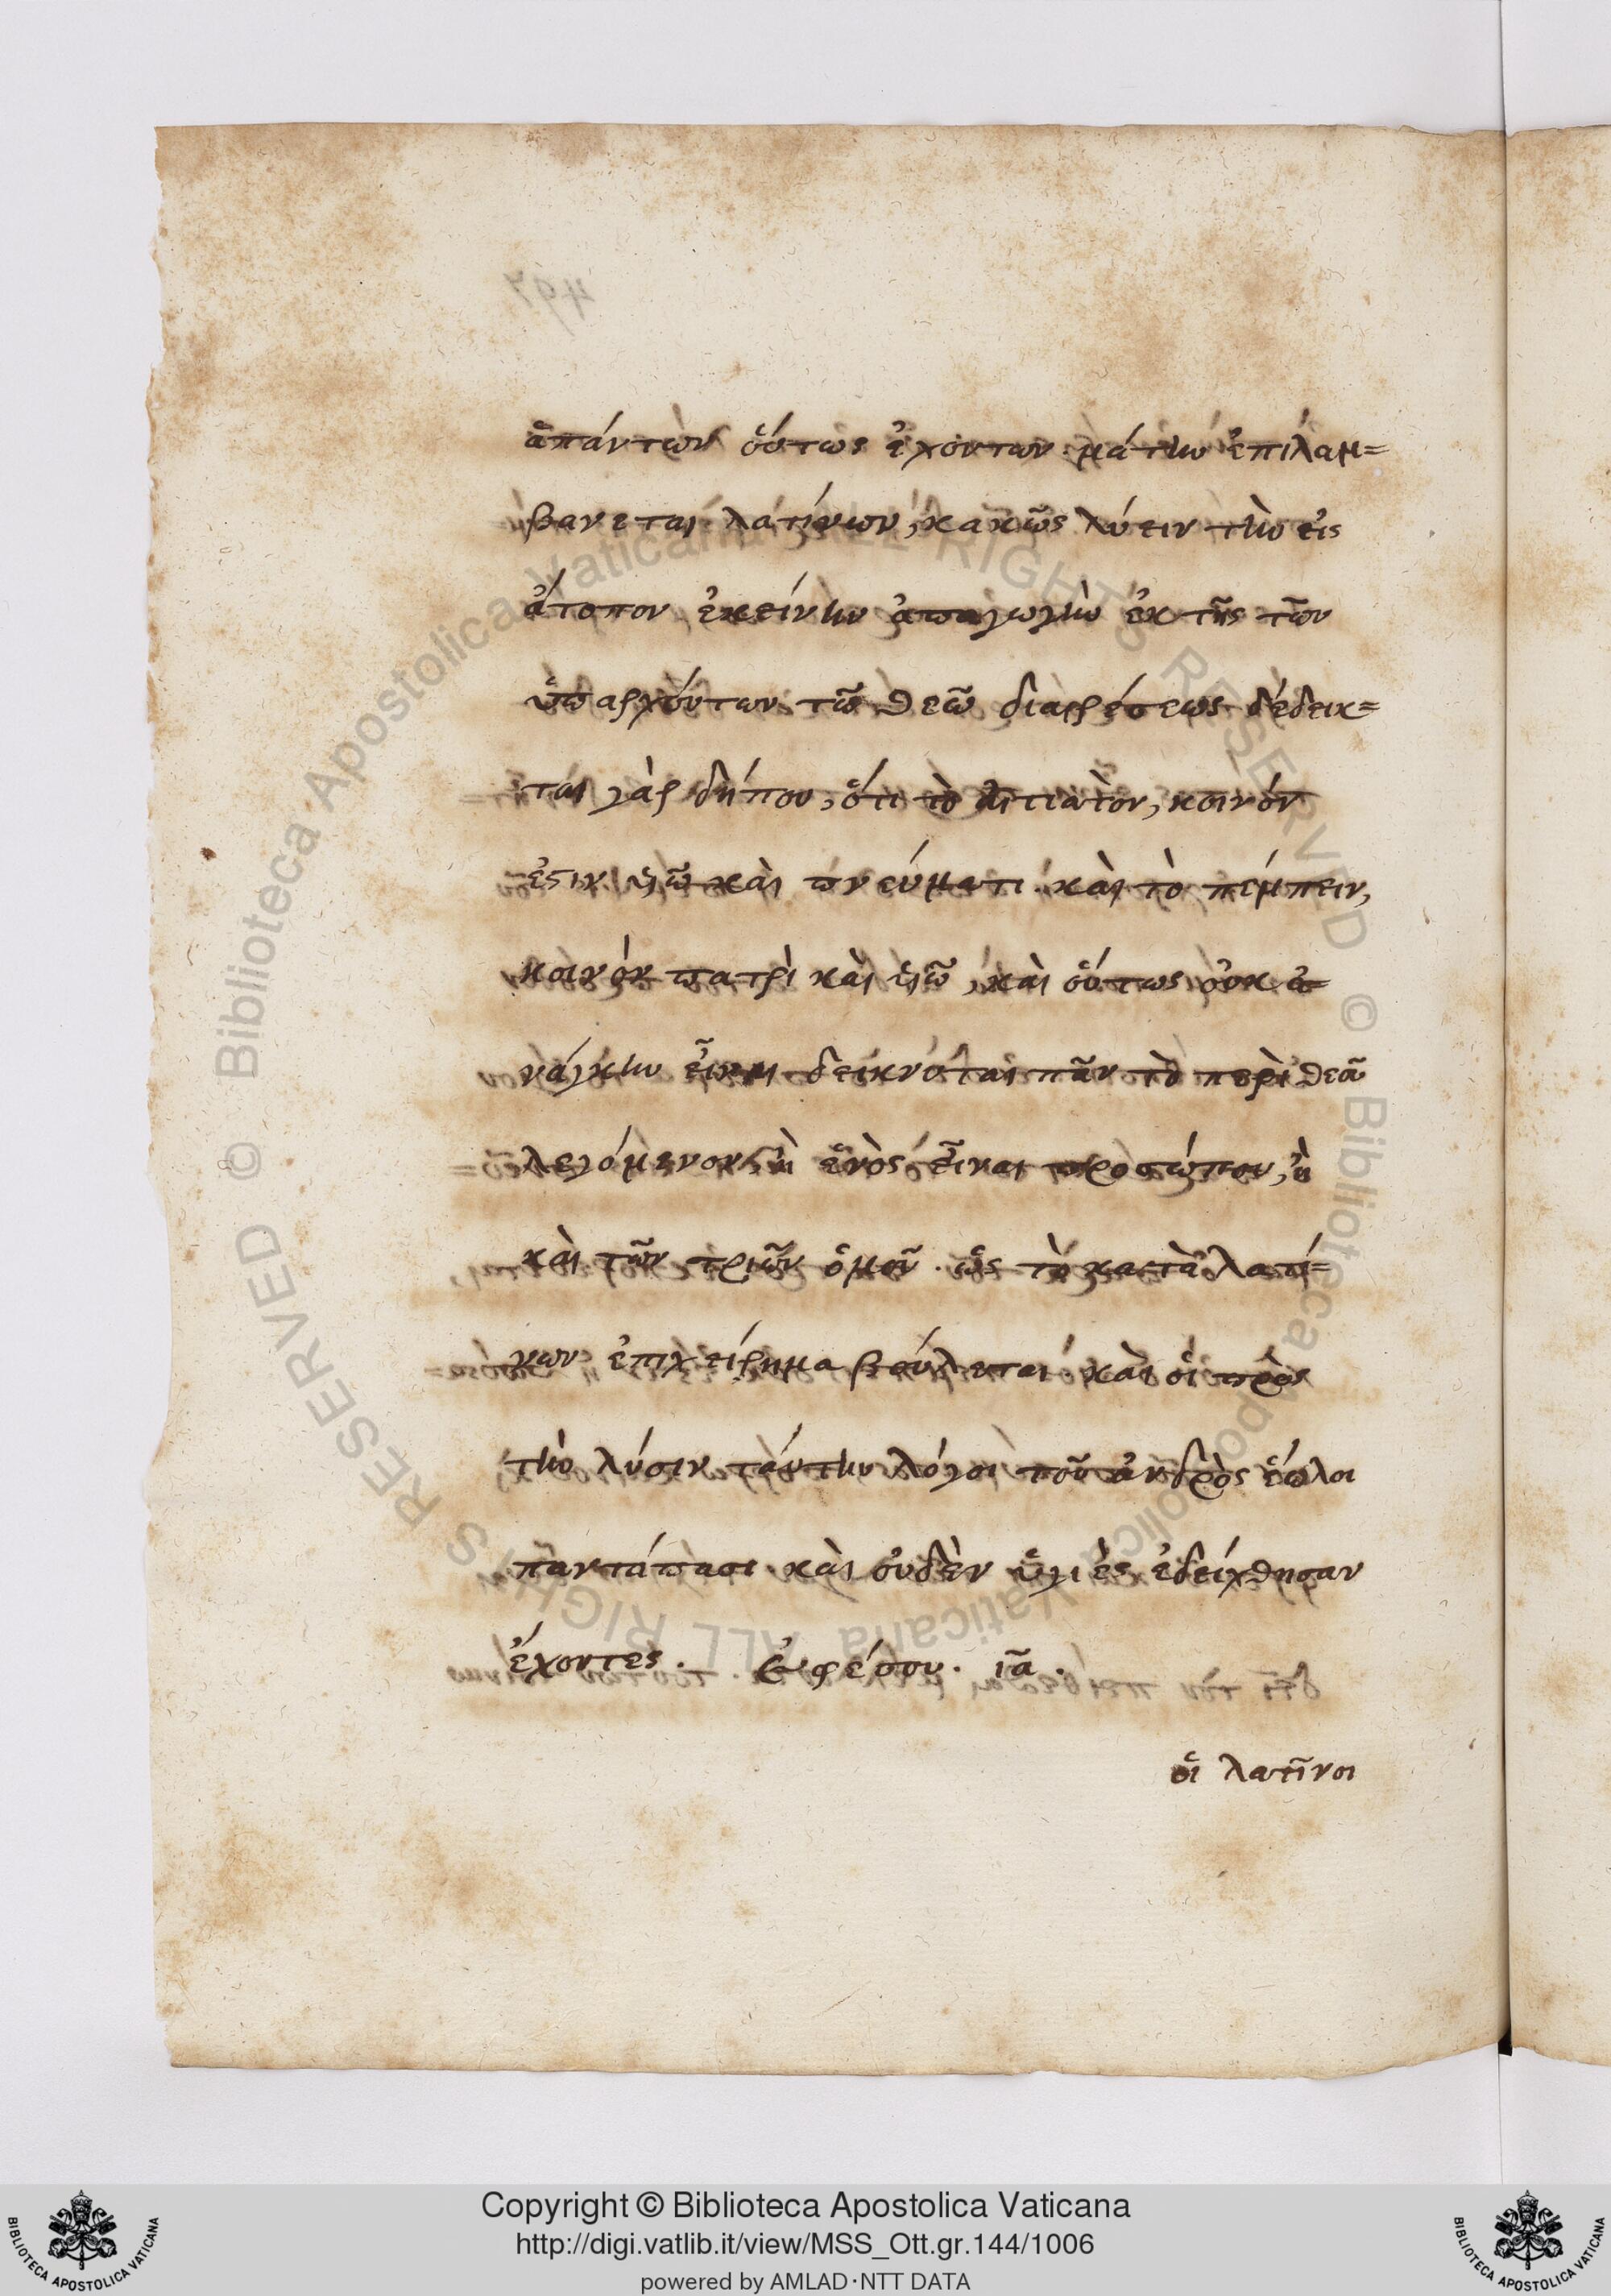 ἁπάντων οὕτως ἐχόντων. μάτην ἐπιλαμ=
βάνεται λατίνων, κακῶς λύειν τὴν εἰς
ἄτοπον ἐκείνην ἀπαγωγὴν ἐκ τῆς τῶν
ὑπαρχόντων τῶ θεῶ διαιρέσεως. δέδεικ=
ται γὰρ δήπου, ὅτι τὸ αἰτιατὸν, κοινόν
ἐστιν υἱῶ καὶ πνεύματι. καὶ τὸ πέμπειν,
κοινὸν πατρὶ καὶ υἱῶ, καὶ οὕτως οὐκ ἀ=
νάγκην εἶναι δείκνυται πᾶν τὸ περὶ θεοῦ
λεγόμενον, ἢ ἑνὸς εἶναι προσώπου, ἢ
καὶ τῶν τριῶν ὁμοῦ. ὡς τὸ κατὰ λατί=
νων ἐπιχείρημα βούλεται. καὶ οἱ πρὸς
τὴν λύσιν ταύτην λόγοι τοῦ ἀνδρὸς ἕωλοι
παντάπασι καὶ οὐδὲν ὑγιὲς ἐδείχθησαν
ἔχοντες. Ἐφέσου. ια.
οἱ λατῖνοι
497
© Biblioteca Apostolica Vaticana ALL RIGHTS RESERVED © Biblioteca Apostolica Vaticana ALL RIGHTS RESERVED
BIBLIOTECA APOSTOLICA VATICANA
Copyright © Biblioteca Apostolica Vaticana
http://digi.vatlib.it/view/MSS_Ott.gr.144/1006
powered by AMLAD·NTT DATA
BIBLIOTECA APOSTOLICA VATICANA